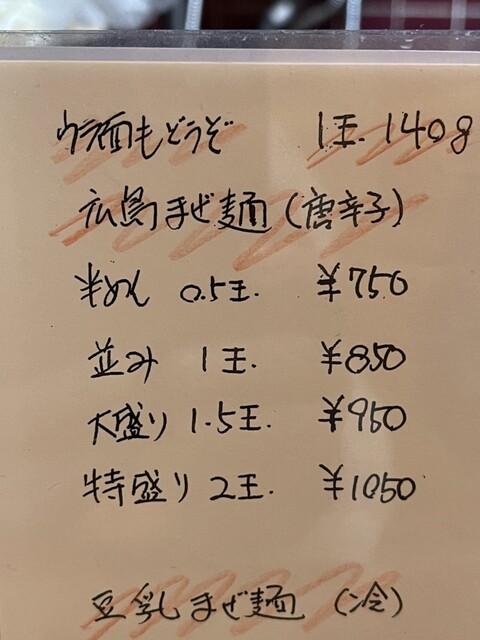 ウラ面もどうぞ 1玉.140g
広島まぜ麺(唐辛子)
半めん 0.5玉. ¥750
並み 1玉. ¥850
大盛り 1.5玉. ¥950
特盛り 2玉. ¥1050
豆乳まぜ麺 (冷)